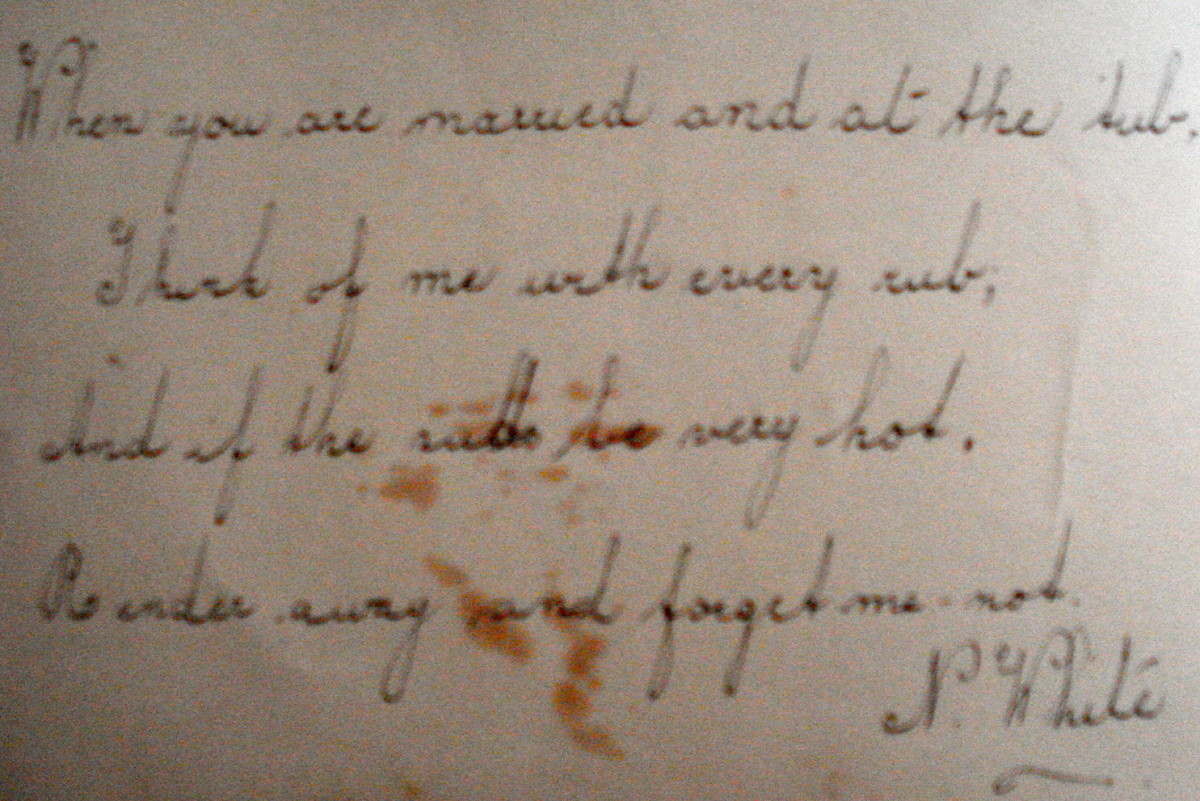 When you are married and at the tub,
Think of me with every rub;
And if the rubs be very hot.
Render away and forget me-not.
N. White